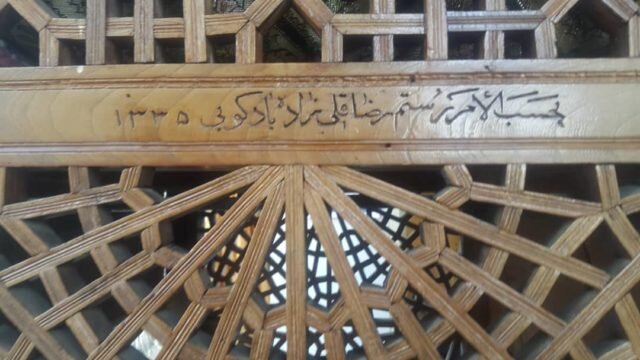 بحسب الأمر رستم رضاقلی زاد بادکوبی ۱۳۳۵